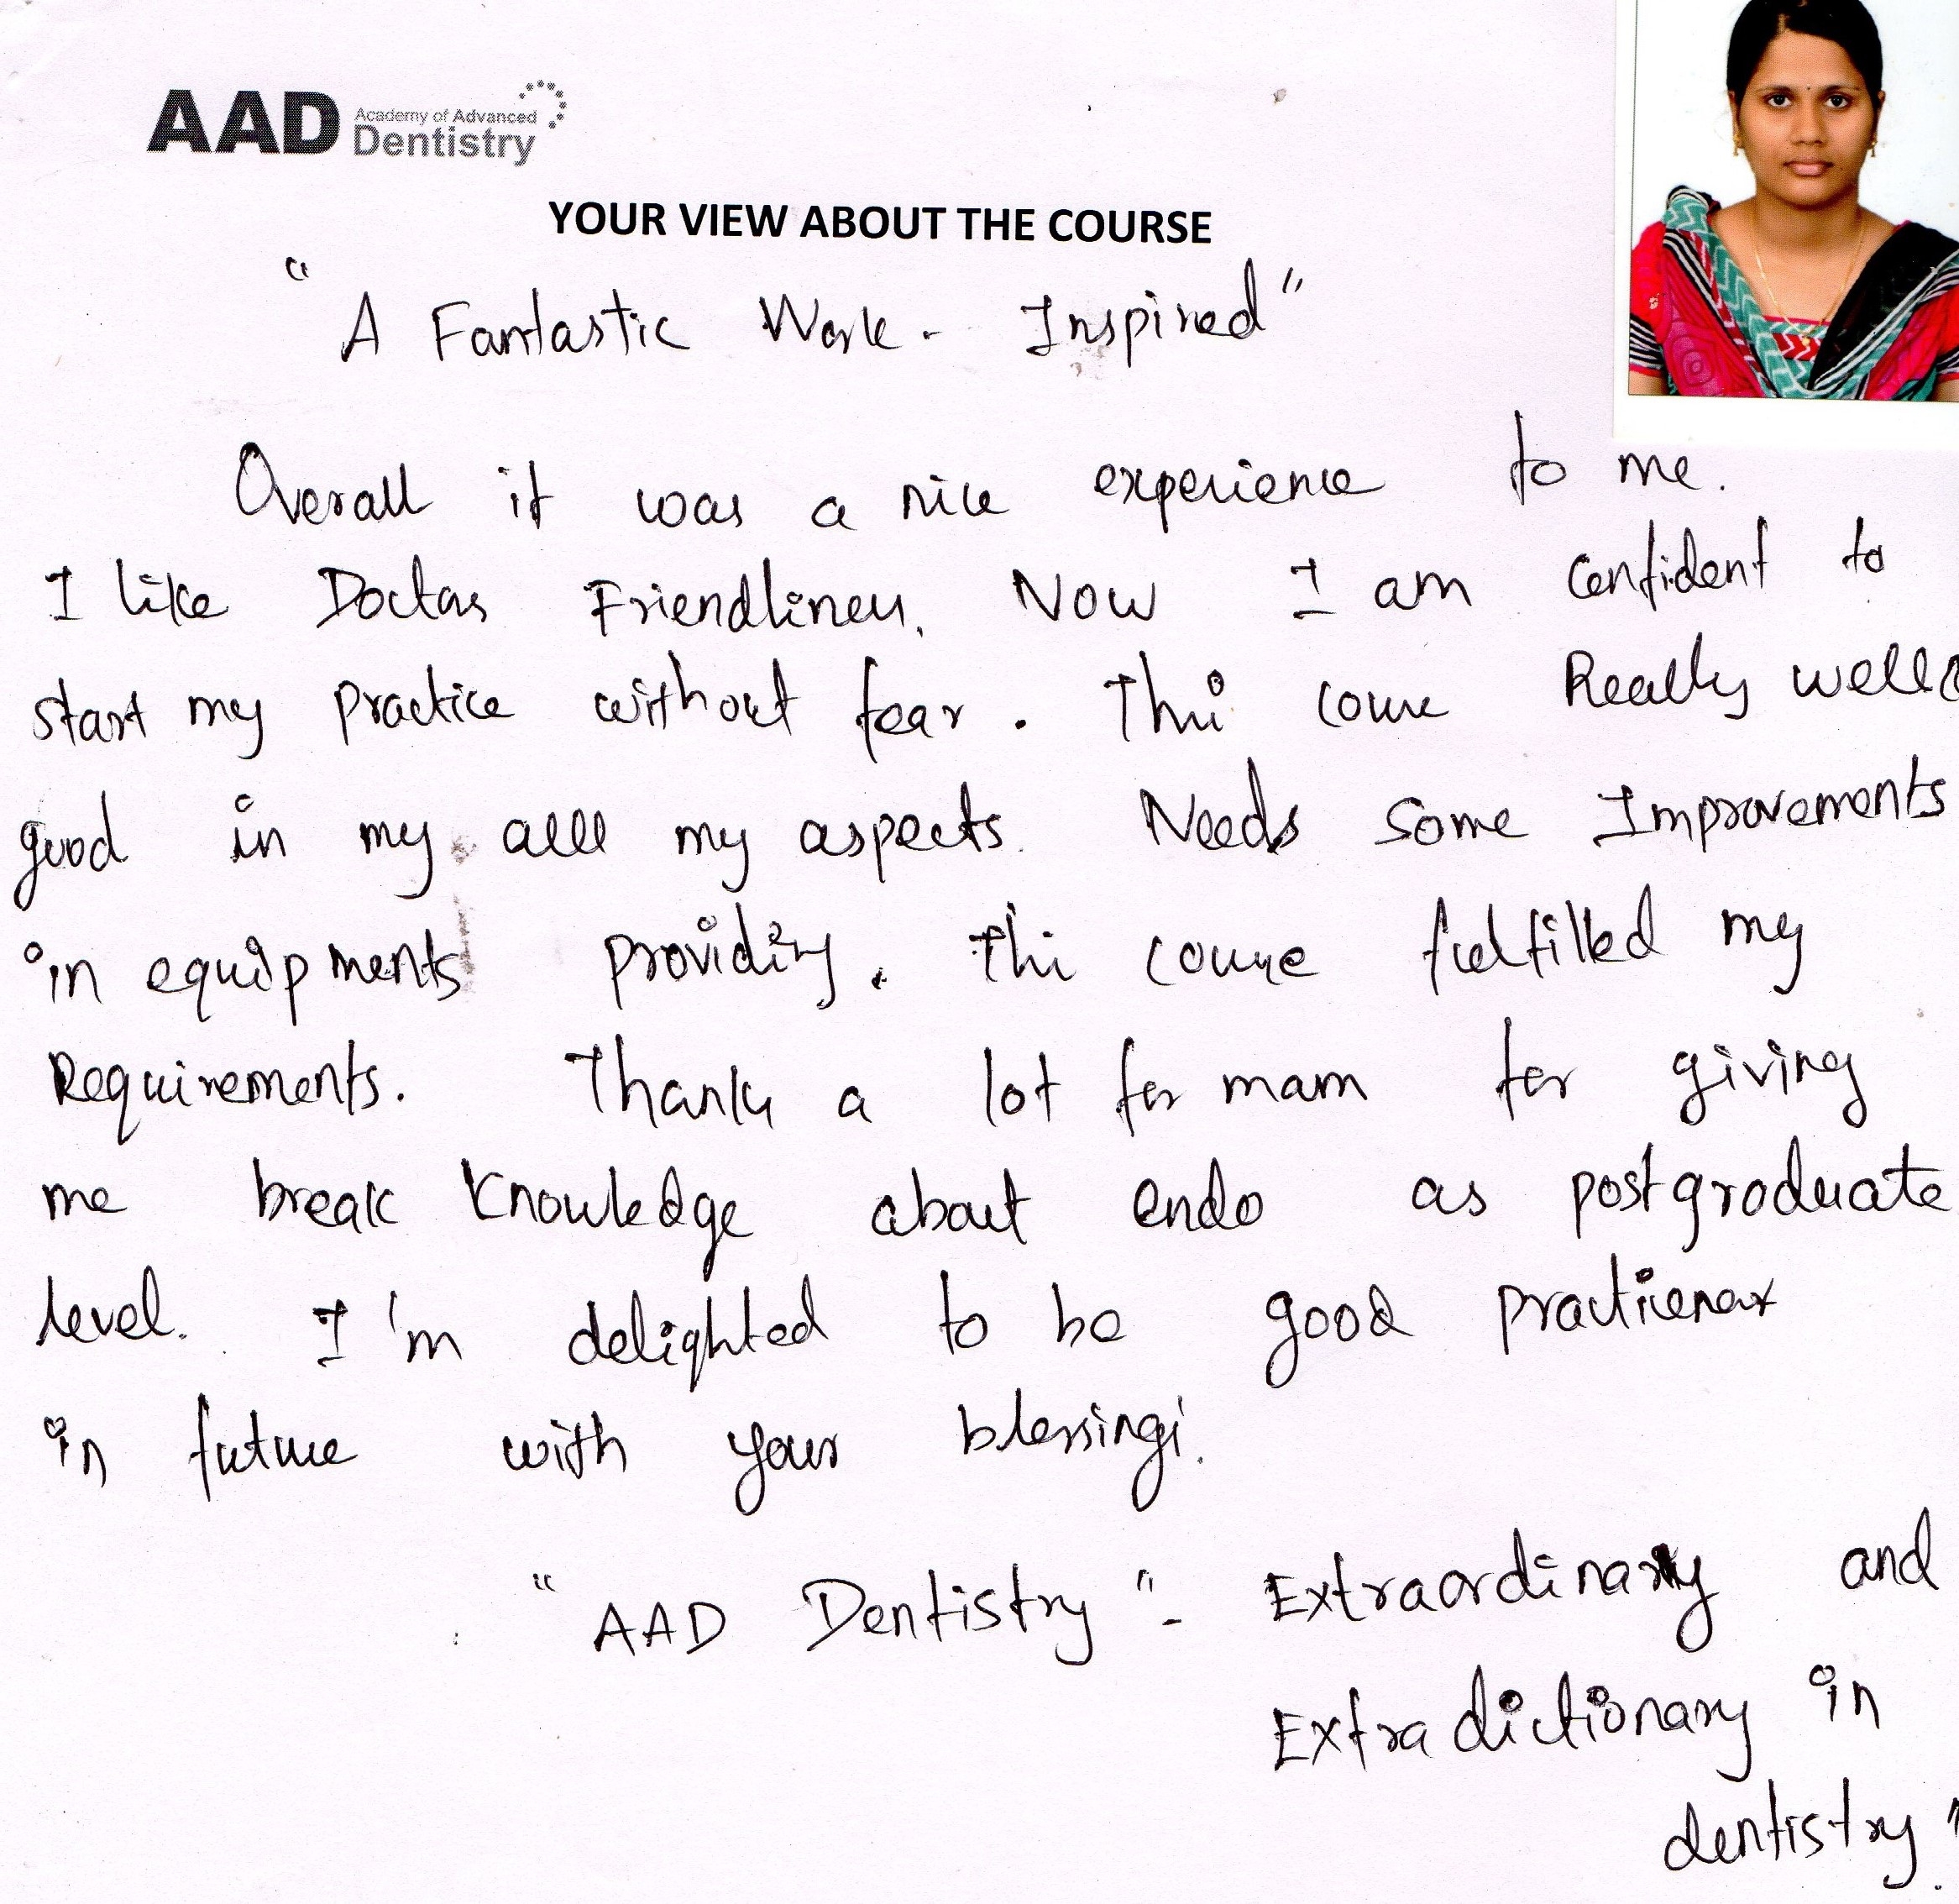 AAD Academy of Advanced
Dentistry
YOUR VIEW ABOUT THE COURSE
"A Fantastic Work - Inspired"
Overall it was a nice experience to me.
I like Doctors Friendliness. Now I am confident to
start my practice without fear. This course Really well
good in my all my aspects. Needs some Improvements
in equipments providing. This course fulfilled my
Requirements. Thanks a lot for mam for giving
me break knowledge about endo as postgraduate
level. I'm delighted to be good practicenar
in future with your blessings.
"AAD Dentistry" - Extraordinary and
Extradictionary in
dentistry"